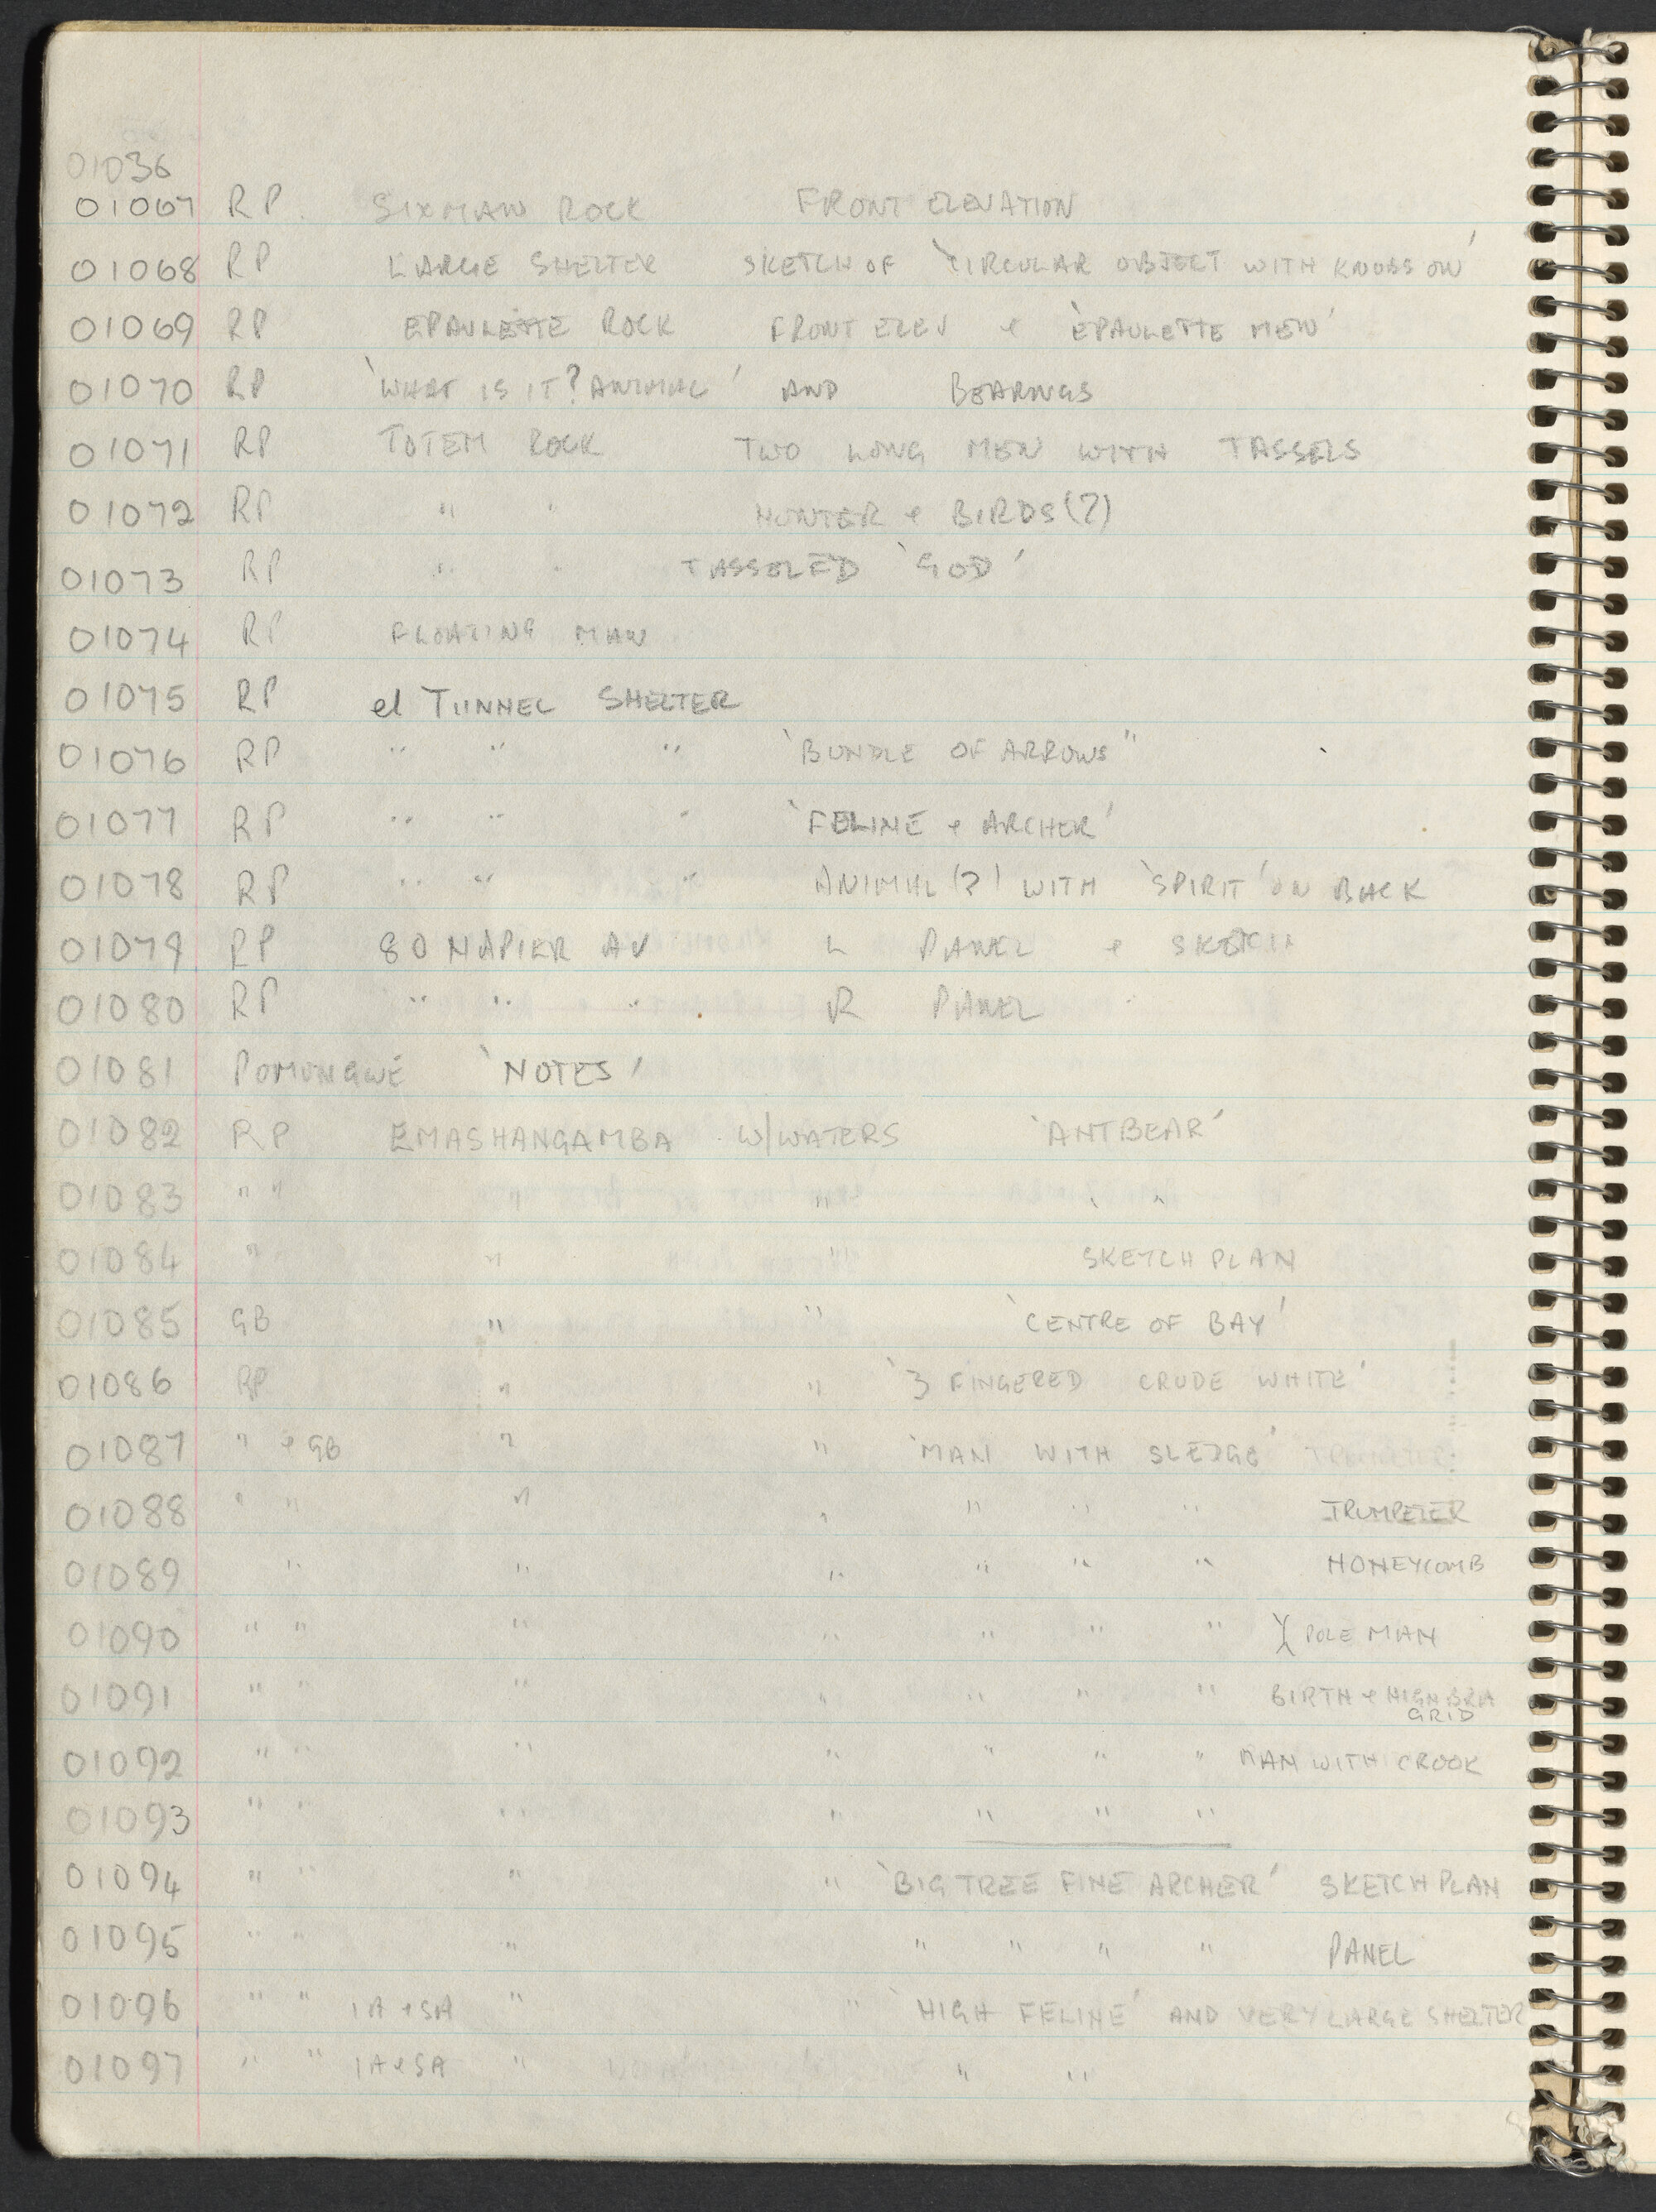 01036
01067 RP. SIXMAN ROCK FRONT ELEVATION
01068 RP LARGE SHELTER SKETCH OF 'CIRCULAR OBJECT WITH KNOBS ON'
01069 RP EPAULETTE ROCK FRONT ELEV & 'EPAULETTE MEN'
01070 RP 'WHAT IS IT? ANIMAL' AND BEARINGS
01071 RP TOTEM ROCK TWO LONG MEN WITH TASSELS
01072 RP " " HUNTER & BIRDS (?)
01073 RP " " TASSELED 'GOD'
01074 RP FLOATING MAN
01075 RP el TUNNEL SHELTER
01076 RP " " " 'BUNDLE OF ARROWS"
01077 RP " " " 'FELINE & ARCHER'
01078 RP " " " ANIMAL (?) WITH 'SPIRIT' ON BACK
01079 RP 80 NAPIER AV L PANEL & SKETCH
01080 RP " " " R PANEL
01081 POMUNGWE 'NOTES'
01082 RP EMASHANGAMBA W/WATERS 'ANTBEAR'
01083 " " " " " "
01084 " " " SKETCH PLAN
01085 GB " " 'CENTRE OF BAY'
01086 RP " " '3 FINGERED CRUDE WHITE'
01087 " & GB " " 'MAN WITH SLEDGE'
01088 " " " " " " " TRUMPETER
01089 " " " " " " HONEYCOMB
01090 " " " " " " " POLE MAN
01091 " " " " " " " BIRTH & HIGH BRA
GRID
01092 " " " " " " " MAN WITH CROOK
01093 " " " " " " "
01094 " " " " 'BIG TREE FINE ARCHER' SKETCH PLAN
01095 " " " " " " " PANEL
01096 " " 1A & 5A " " 'HIGH FELINE' AND VERY LARGE SHELTER
01097 " " 1A & 5A " " "